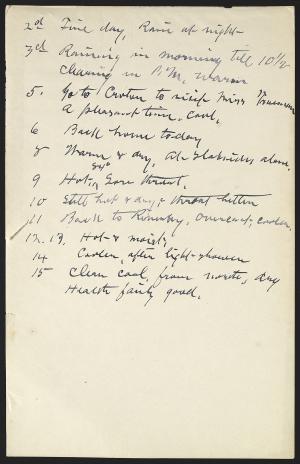 2d Fine day, Rain at night-
3d Raining in morning till 10 1/2
clearing in P.M. warm
5. Go to Croton to visit Miss
A pleasant time. Cool.
6 Back home today
8 Warm & dry, At Slabsides alone.
9 Hot, 84° Sore throat.
10 Still hot & dry, throat better
11 Back to Riverby, Overcast, cooler.
12. 13. Hot & moist,
14 Cooler, after light shower
15 Clear cool, from north, dry
Health fairly good.